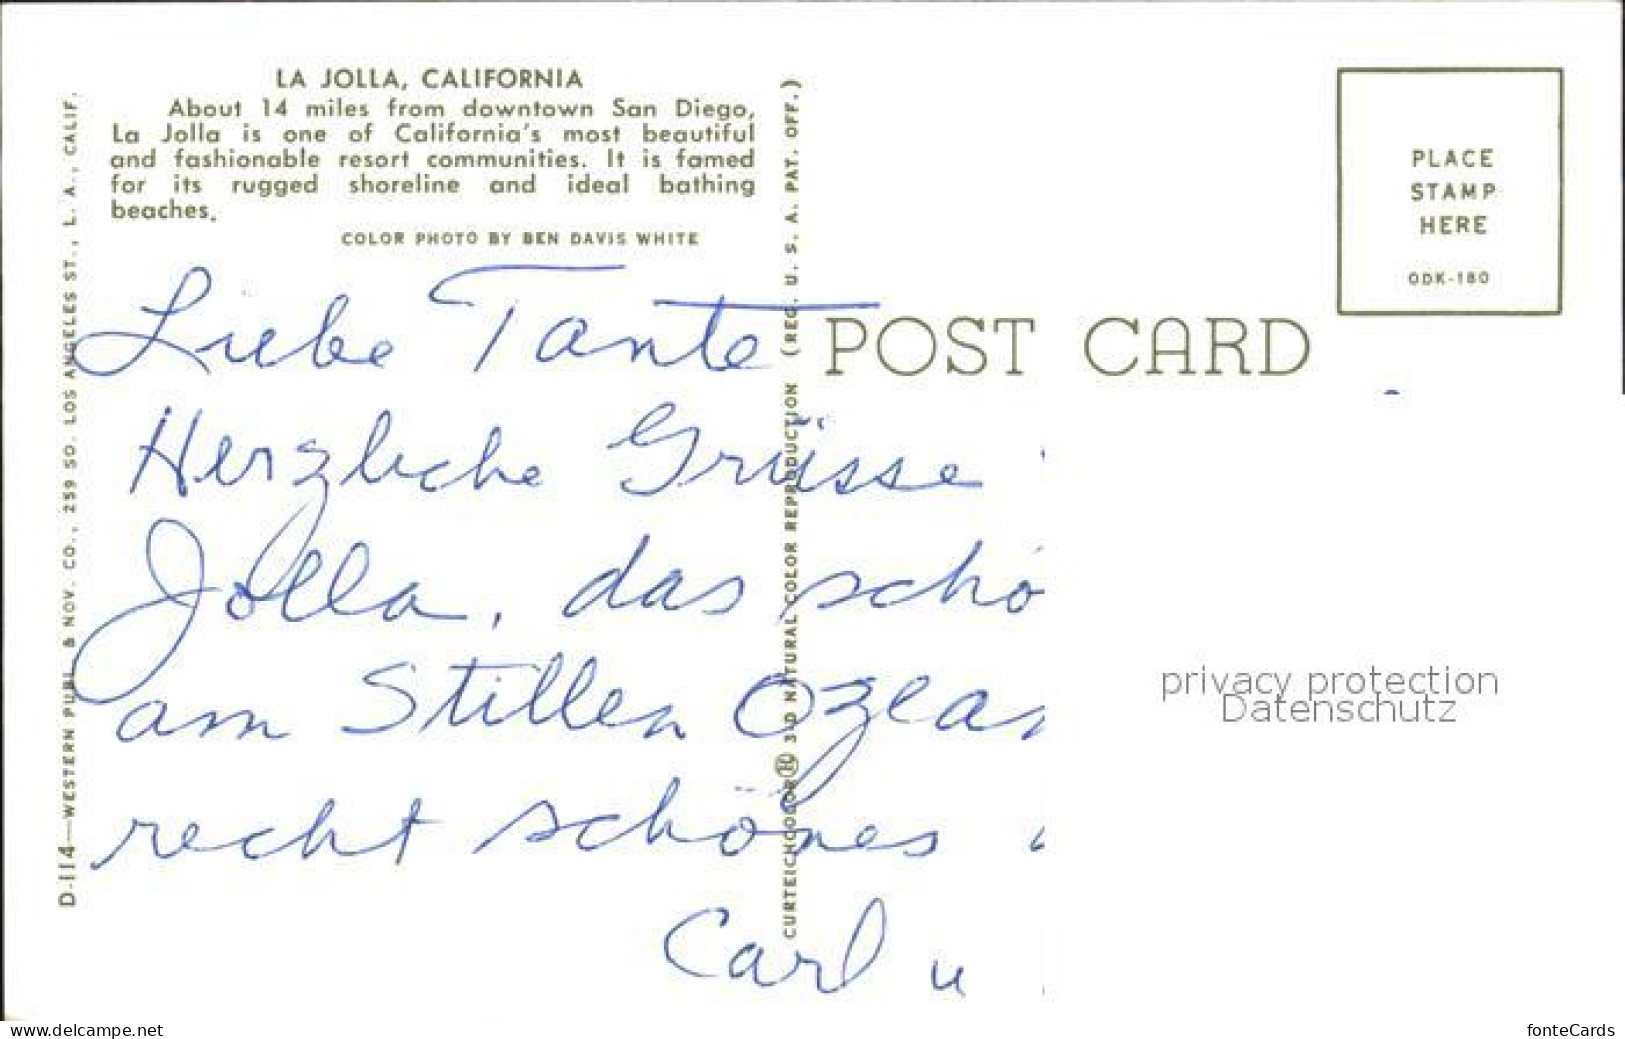 LA JOLLA, CALIFORNIA
About 14 miles from downtown San Diego,
La Jolla is one of California's most beautiful
and fashionable resort communities. It is famed
for its rugged shoreline and ideal bathing
beaches.
COLOR PHOTO BY BEN DAVIS WHITE
D-114—WESTERN PUBL. & NOV. CO., 259 SO. LOS ANGELES ST., L. A., CALIF.
Liebe Tante
Herzliche Grüsse
Jolla, das schö
am Stillen Ozean
recht schönes
Carl u
CURTEICHCOLOR® 3-D NATURAL COLOR REPRODUCTION (REG. U. S. A. PAT. OFF.)
POST CARD
PLACE
STAMP
HERE
ODK-180
privacy protection
Datenschutz
www.delcampe.net
fonteCards